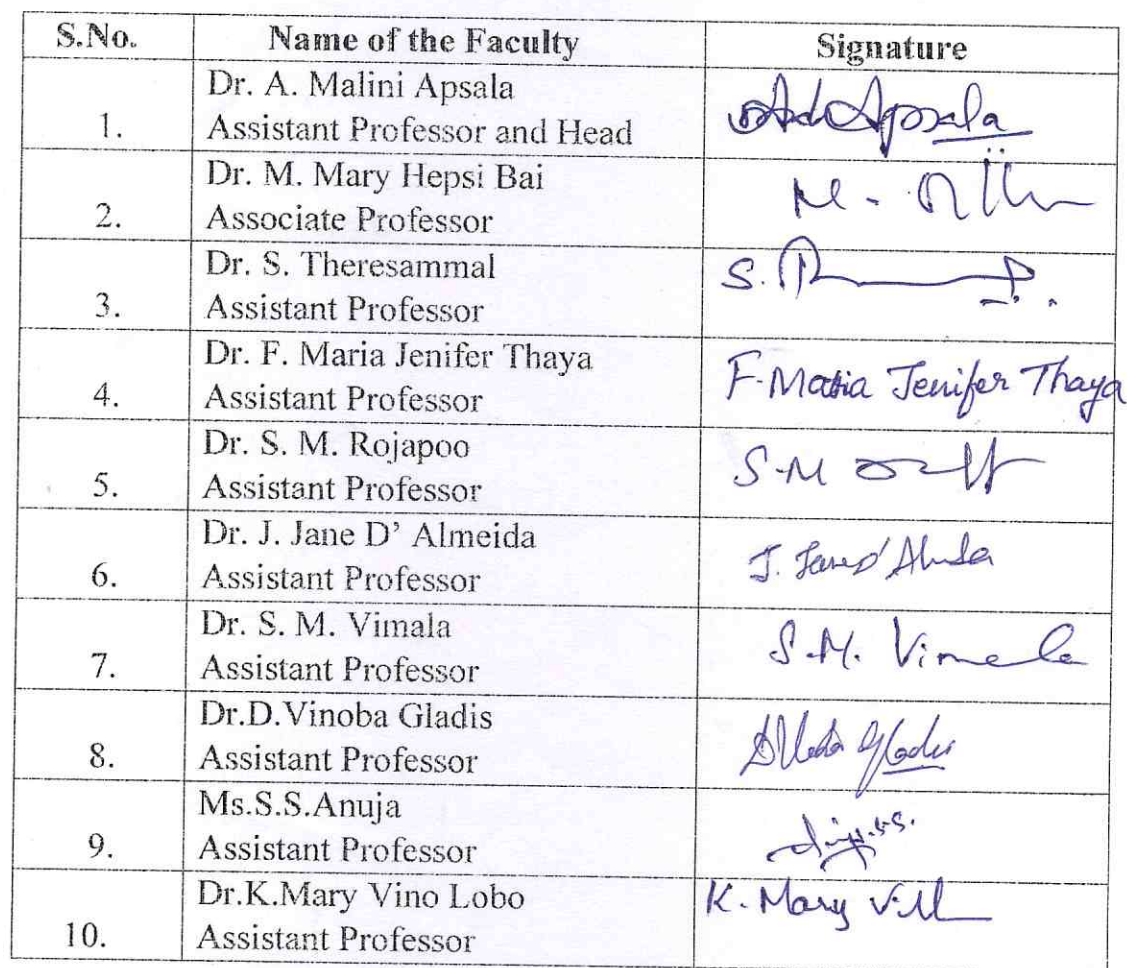 S.No. Name of the Faculty Signature
Dr. A. Malini Apsala
1. Assistant Professor and Head Apsala
Dr. M. Mary Hepsi Bai
2. Associate Professor M.
Dr. S. Theresammal
3. Assistant Professor S.
Dr. F. Maria Jenifer Thaya
4. Assistant Professor F. Maria Jenifer Thaya
Dr. S. M. Rojapoo
5. Assistant Professor S.M
Dr. J. Jane D' Almeida
6. Assistant Professor J.
Dr. S. M. Vimala
7. Assistant Professor S.M. Vimala
Dr.D.Vinoba Gladis
8. Assistant Professor
Ms.S.S.Anuja
9. Assistant Professor
Dr.K.Mary Vino Lobo K. Mary
10. Assistant Professor